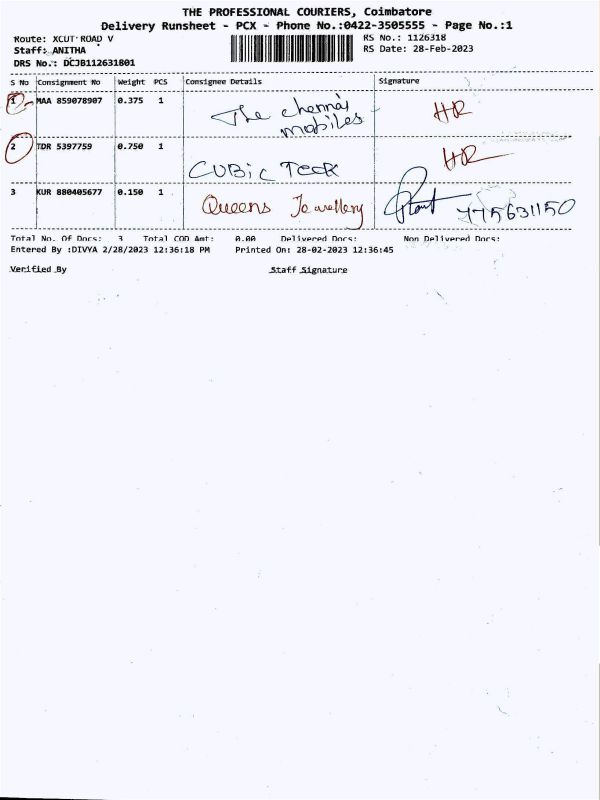 THE PROFESSIONAL COURIERS, Coimbatore
Delivery Runsheet - PCX - Phone No.:0422-3505555 - Page No.:1
Route: XCUT ROAD V
RS No.: 1126318
Staff: ANITHA
RS Date: 28-Feb-2023
DRS No.: DCJB112631801
S No Consignment No Weight PCS Consignee Details Signature
1 MAA 859078907 0.375 1 The chennai mobiles HR
2 TDR 5397759 0.750 1 CUBiC TECK HR
3 KUR 880405677 0.150 1 Queens Jewellery 775631150
Total No. Of Docs: 3 Total COD Amt: 0.00 Delivered Docs: Non Delivered Docs:
Entered By :DIVYA 2/28/2023 12:36:18 PM Printed On: 28-02-2023 12:36:45
Verified By Staff Signature